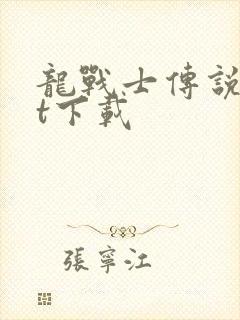 龍戰士傳說
t下載
張寧江